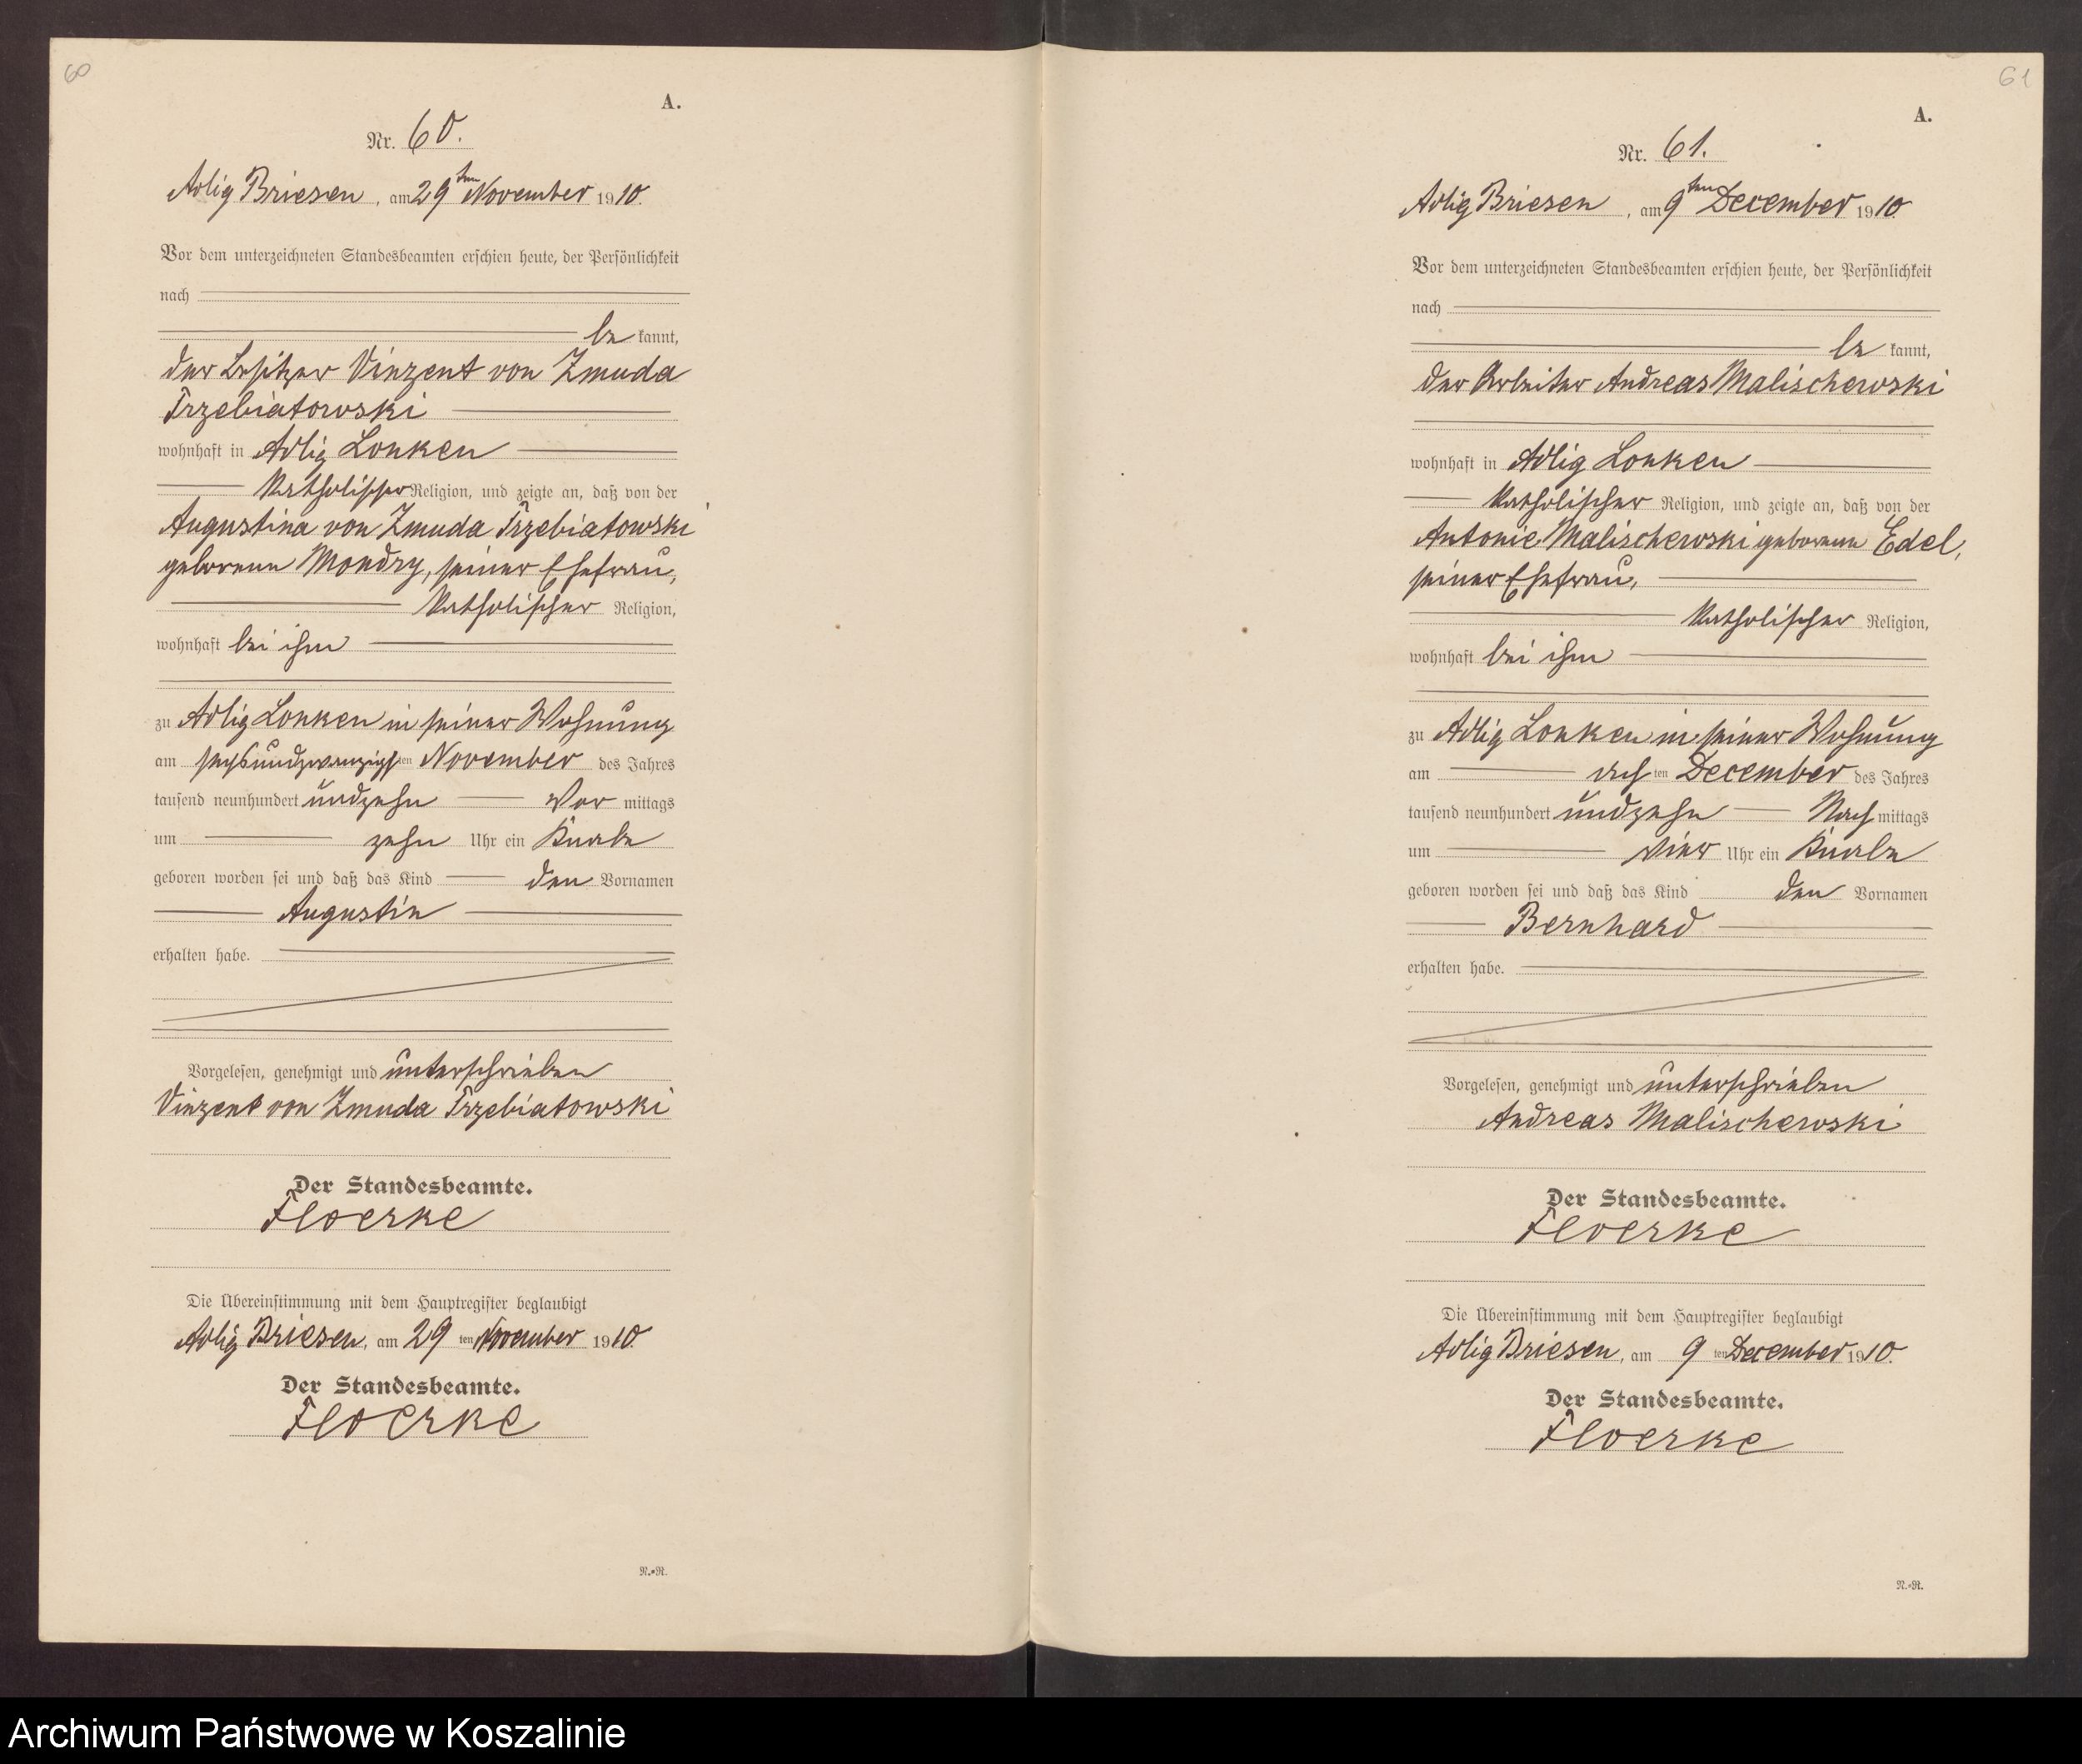 60
A.
Nr. 60.
Adlig Briesen, am 29ten November 1910.
Vor dem unterzeichneten Standesbeamten erschien heute, der Persönlichkeit
nach
be kannt,
der Besitzer Vinzent von Zmuda
Trzebiatowski
wohnhaft in Adlig Lonken
katholischer Religion, und zeigte an, daß von der
Augustina von Zmuda Trzebiatowski
geborenen Mondry, seiner Ehefrau,
katholischer Religion,
wohnhaft bei ihm
zu Adlig Lonken in seiner Wohnung
am sechsundzwanzigsten November des Jahres
tausend neunhundert undzehn Vor mittags
um zehn Uhr ein Knabe
geboren worden sei und daß das Kind den Vornamen
Augustin
erhalten habe.
Vorgelesen, genehmigt und unterschrieben
Vinzent von Zmuda Trzebiatowski
Der Standesbeamte.
Floerke
Die Übereinstimmung mit dem Hauptregister beglaubigt
Adlig Briesen, am 29 ten November 1910.
Der Standesbeamte.
Floerke
N.-R.
61
A.
Nr. 61.
Adlig Briesen, am 9ten December 1910.
Vor dem unterzeichneten Standesbeamten erschien heute, der Persönlichkeit
nach
be kannt,
der Arbeiter Andreas Malischewski
wohnhaft in Adlig Lonken
katholischer Religion, und zeigte an, daß von der
Antonie Malischewski geborenen Edel,
seiner Ehefrau,
katholischer Religion,
wohnhaft bei ihm
zu Adlig Lonken in seiner Wohnung
am ach ten December des Jahres
tausend neunhundert undzehn Nach mittags
um vier Uhr ein Knabe
geboren worden sei und daß das Kind den Vornamen
Bernhard
erhalten habe.
Vorgelesen, genehmigt und unterschrieben
Andreas Malischewski
Der Standesbeamte.
Floerke
Die Übereinstimmung mit dem Hauptregister beglaubigt
Adlig Briesen, am 9 ten December 1910.
Der Standesbeamte.
Floerke
N.-R.
Archiwum Państwowe w Koszalinie